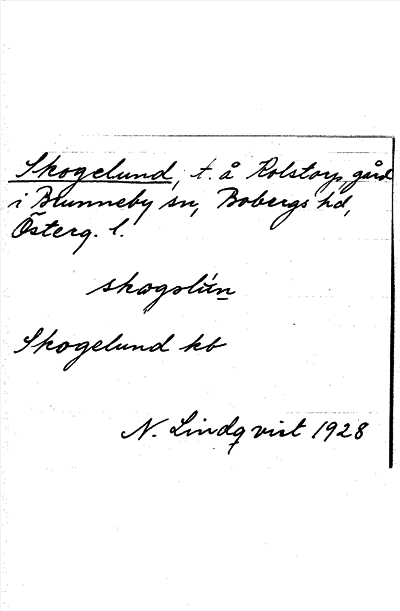 Skogelund, t. å Rolstorp, gård
i Brunneby sn, Bobergs hd,
Österg. l.
skogslún
Skogelund kb
N. Lindqvist 1928